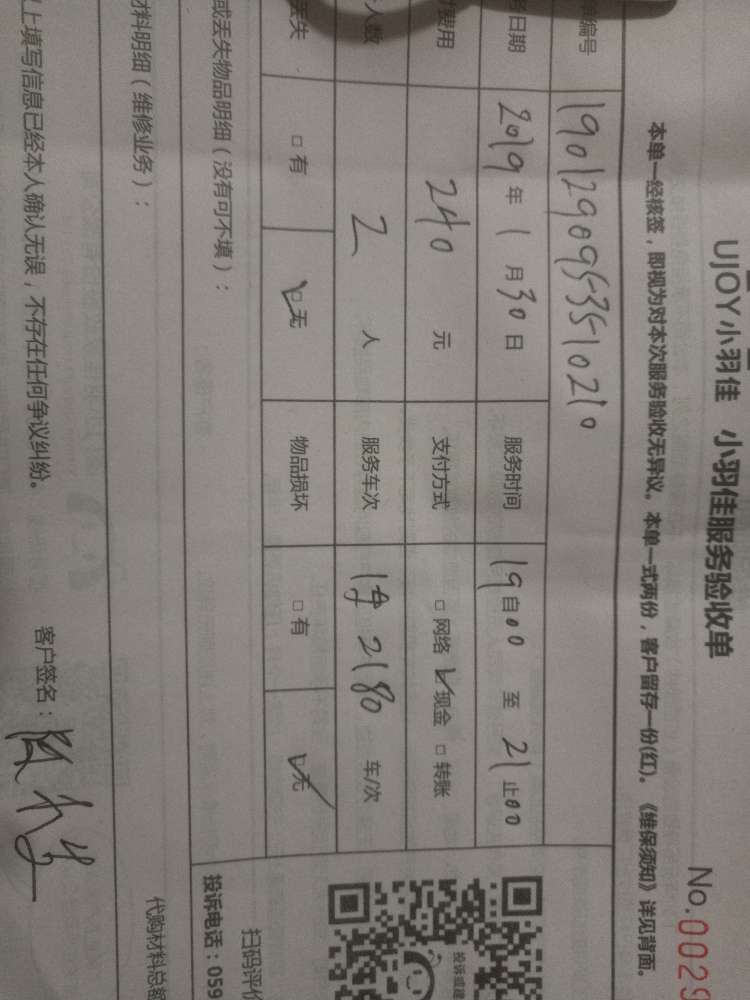 UJOY小羽佳 小羽佳服务验收单
No.0029
本单一经核签，即视为对本次服务验收无异议。本单一式两份，客户留存一份(红)。《维保须知》详见背面。
单编号 1901290953510210
务日期 2019年1月30日 服务时间 19自00 至 21止00
费用 240元 支付方式 □网络 ☑现金 □转账
人数 2人 服务车次 2180 车/次
丢失 □有 ☑无 物品损坏 □有 ☑无
或丢失物品明细（没有可不填）：
投诉或建
扫码评价
投诉电话：059
材料明细（维修业务）：
代购材料总额
上填写信息已经本人确认无误，不存在任何争议纠纷。 客户签名：